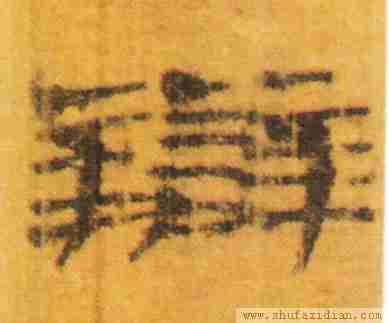 辯
www.shufazidian.com